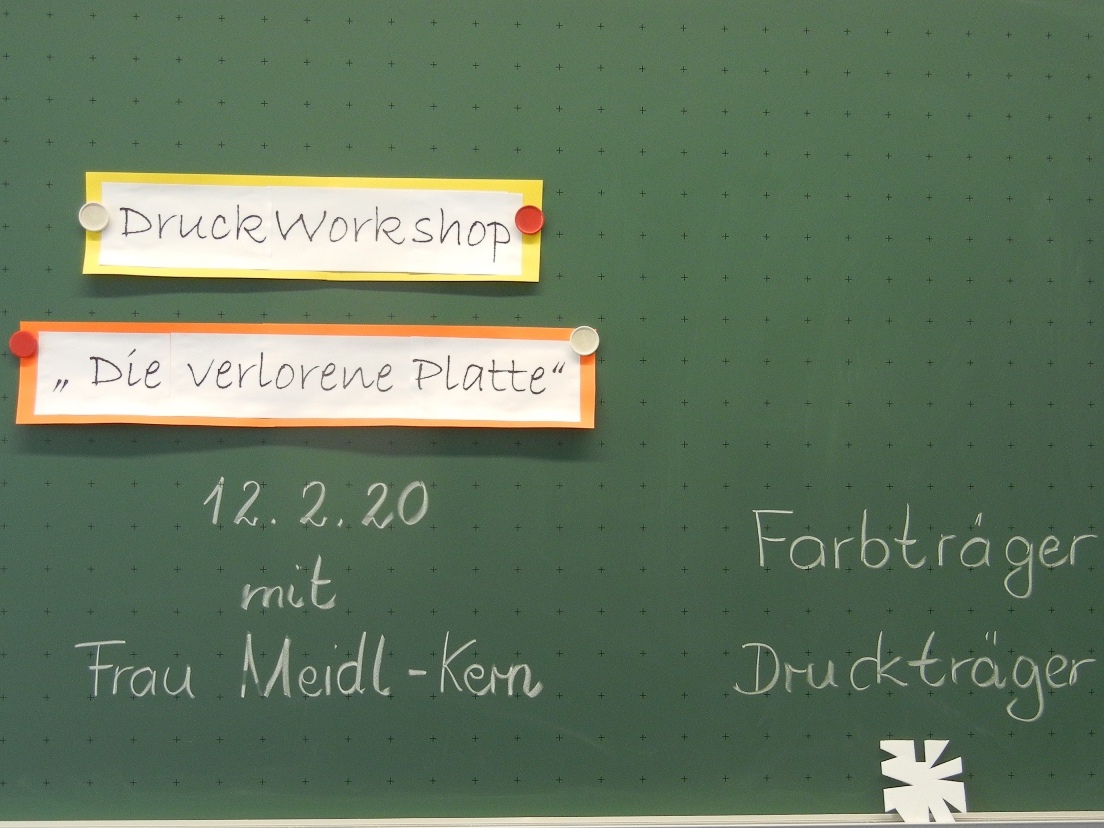 DruckWorkshop
„Die verlorene Platte“
12.2.20
mit
Frau Meidl-Kern
Farbträger
Druckträger